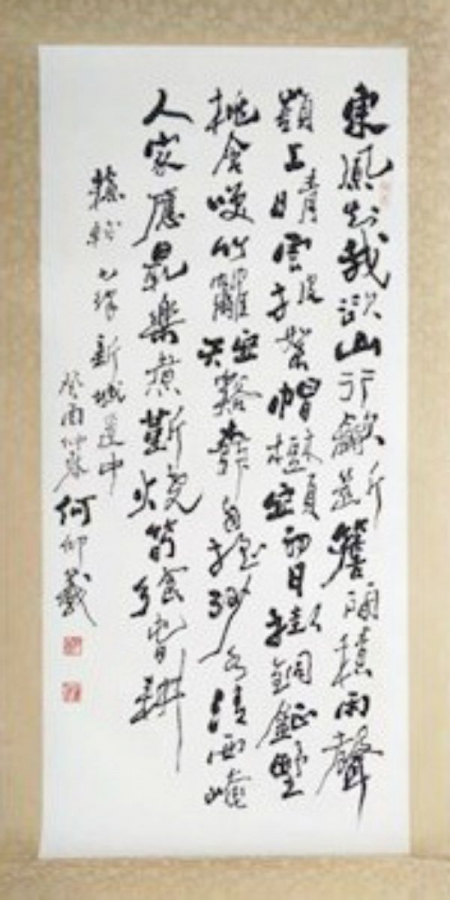 東風知我欲山行吹斷簷間積雨聲
嶺上晴雲披絮帽樹頭初日掛銅鉦野
桃含咲竹籬短溪柳自搖沙水清西崦
人家應最樂煮芹燒筍餉春耕
蘇軾七律新城道中
癸酉仲春何仰